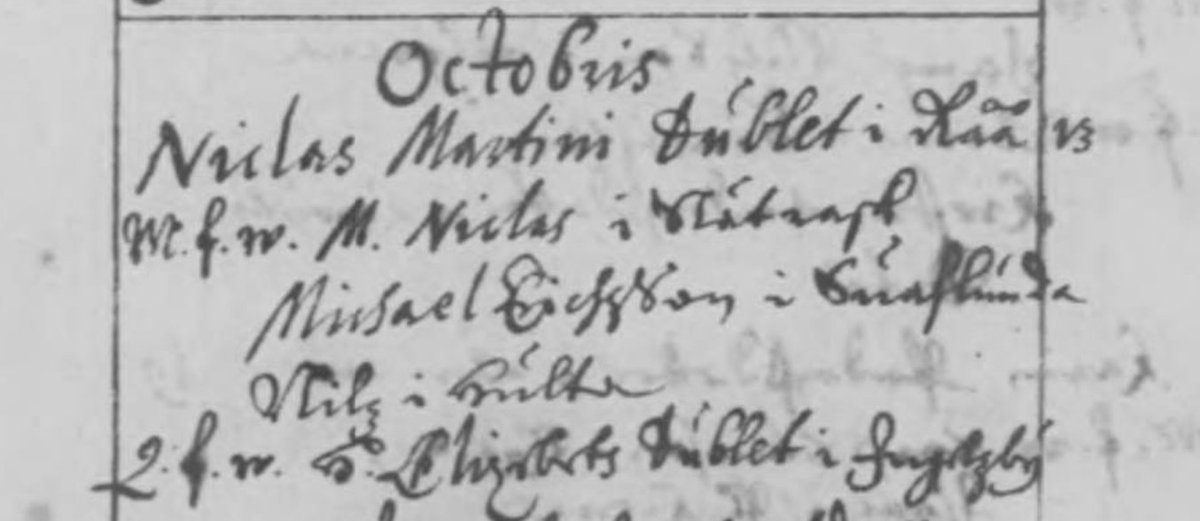 Octobris
Niclas Martini Dublet i Råå 13
M. f. w. M. Niclas i Nätrask
Michael Erichsson i Suaflunda
Nilz i Hulta
Q. f. w. H. Elizabets Dublet i Ingelzby